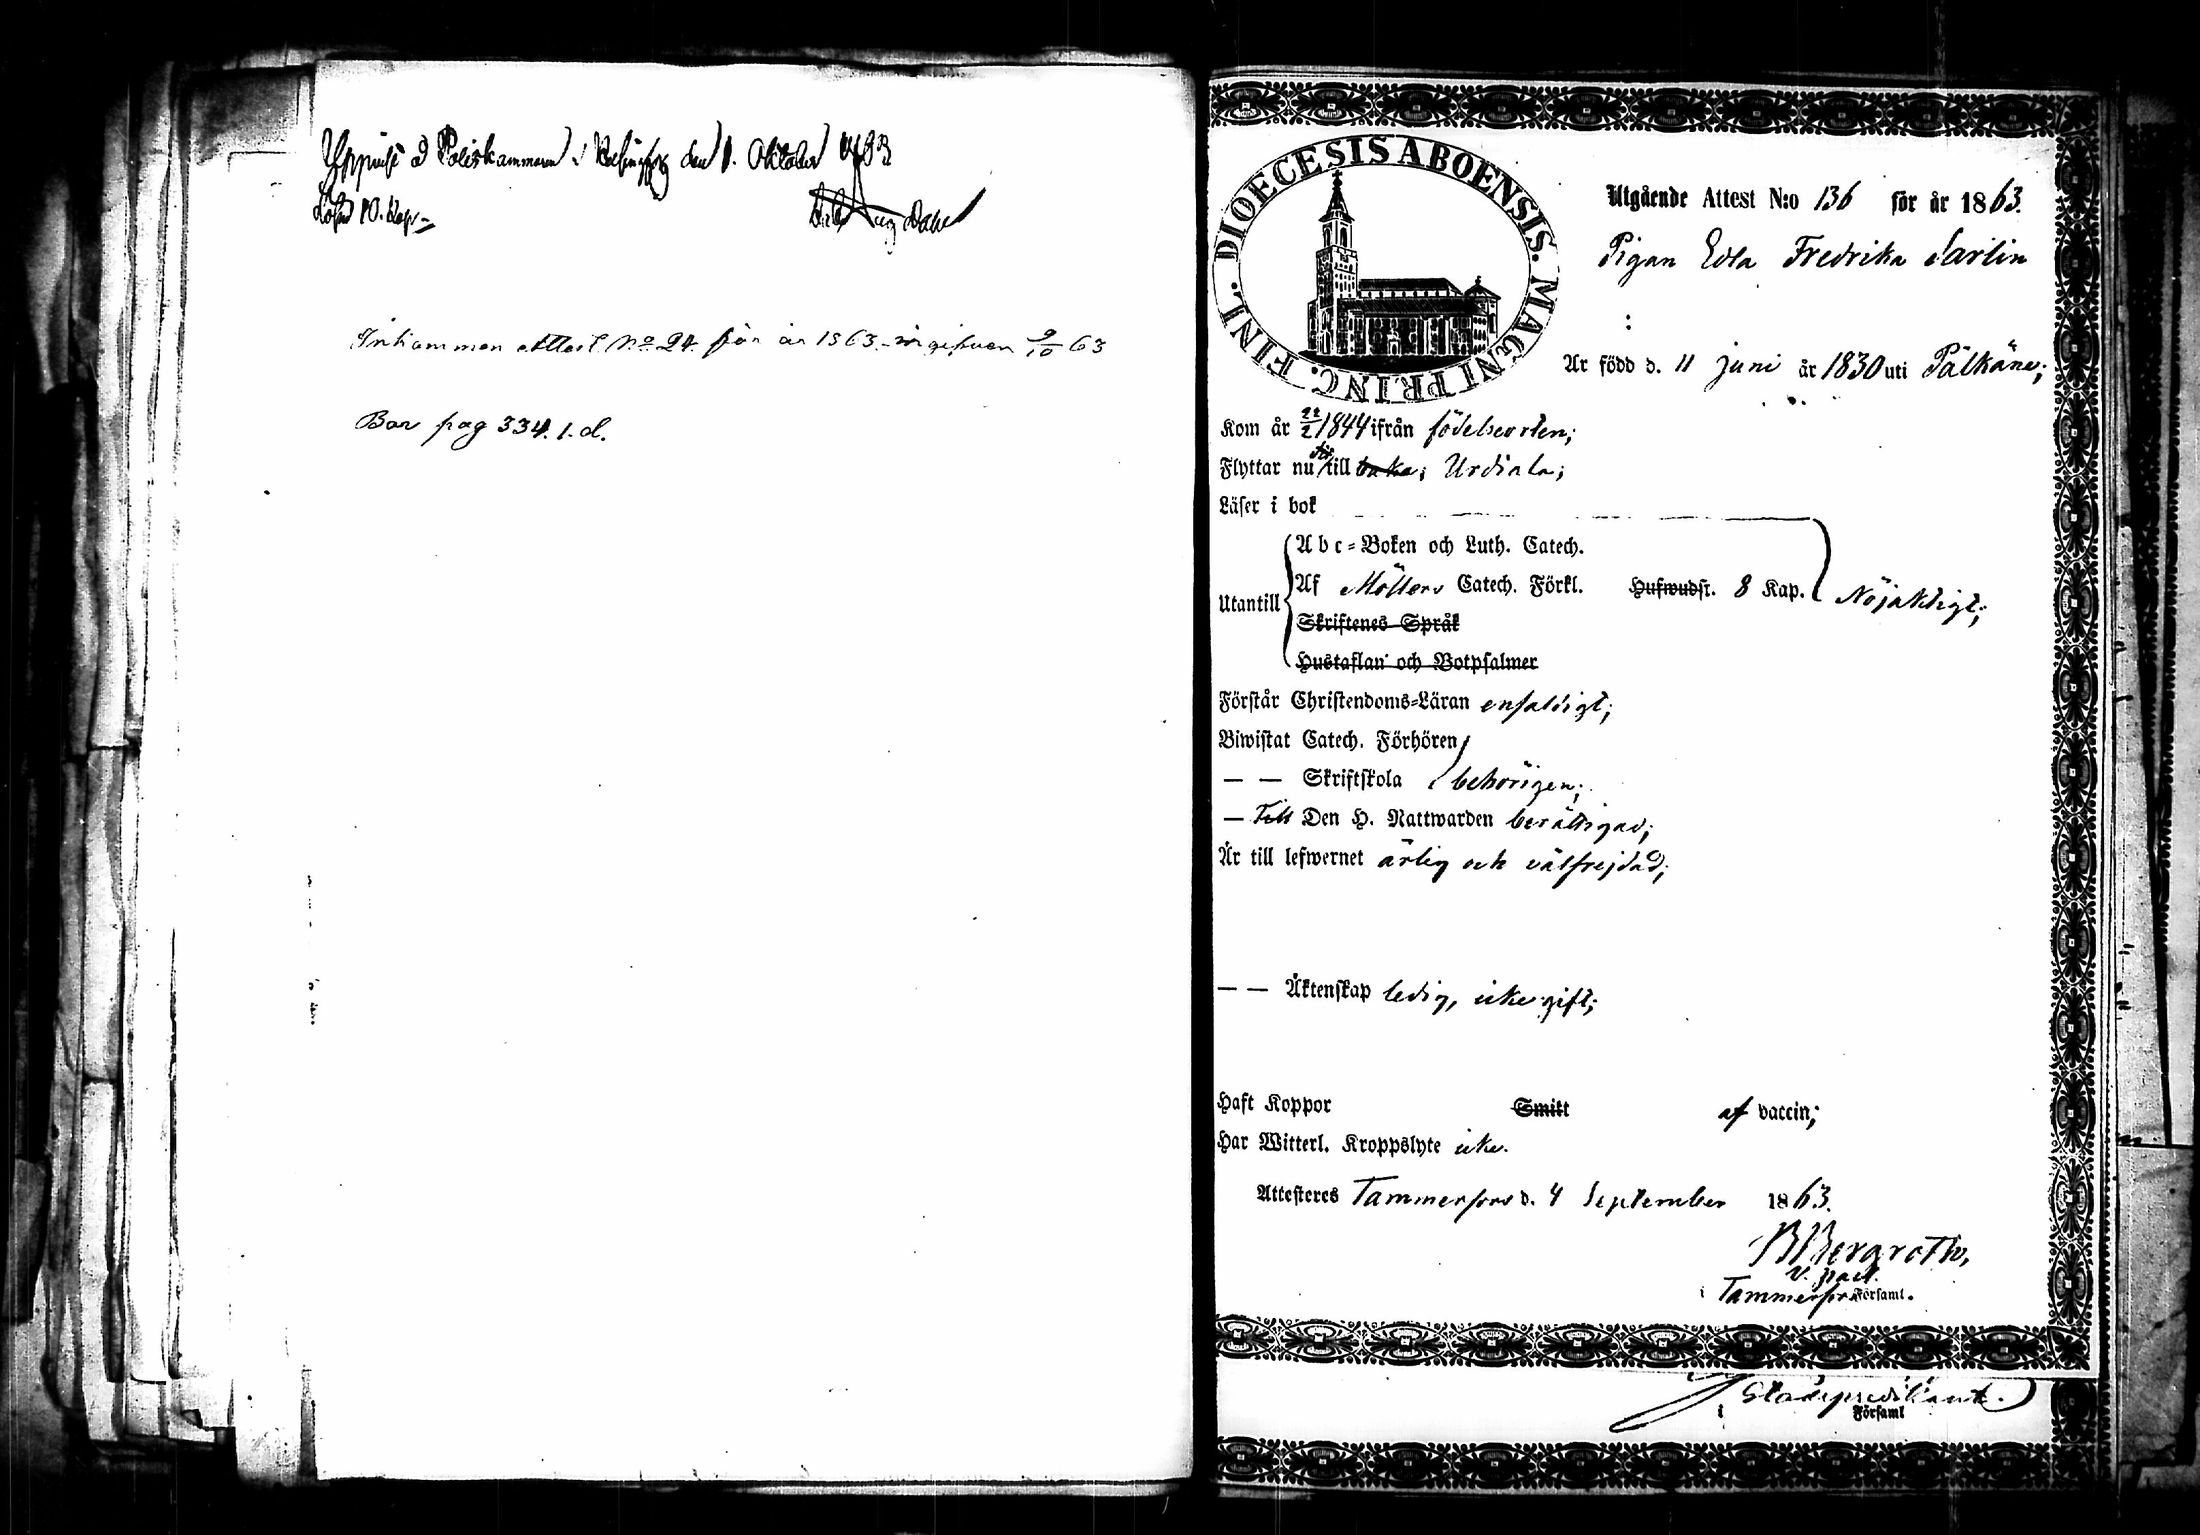 Uppvist å Poliskammaren i Helsingfors den 1. Oktober 1863
Lösen 10. Kop
Inkommen attest No 24. för år 1863 ingifven 9/10 63
Bor pag 334. 1. d.
DIOECESIS ABOENSIS. MAGNI PRINC. FINL.
Utgående Attest N:o 136 för år 1863.
Pigan Edla Fredrika Sarlin
Är född d. 11 Juni år 1830 uti Pälkäne;
Kom år 22/2 1844 ifrån födelseorten;
Flyttar nu till baka; Urdiala;
Läser i bok
Abc-Boken och Luth. Catech.
Utantill Af Möllers Catech. Förkl. Hufwudst. 8 Kap. Nöjaktigt;
Skriftenes Språk
Hustaflan och Botpsalmer
Förstår Christendoms-Läran enfaldigt;
Biwistat Catech. Förhören
— — Skriftskola behörigen;
— Till Den H. Nattwarden berättigad;
Är till lefwernet ärlig och välfrejdad;
— — Äktenskap ledig, icke gift;
Haft Koppor Smitt af vaccin;
Har Witterl. Kroppslyte icke.
Attesteras Tammerfors d. 4 September 1863.
B Bergroth,
v. past.
i Tammerfors Församl.
Stadspredikant.
i Församl